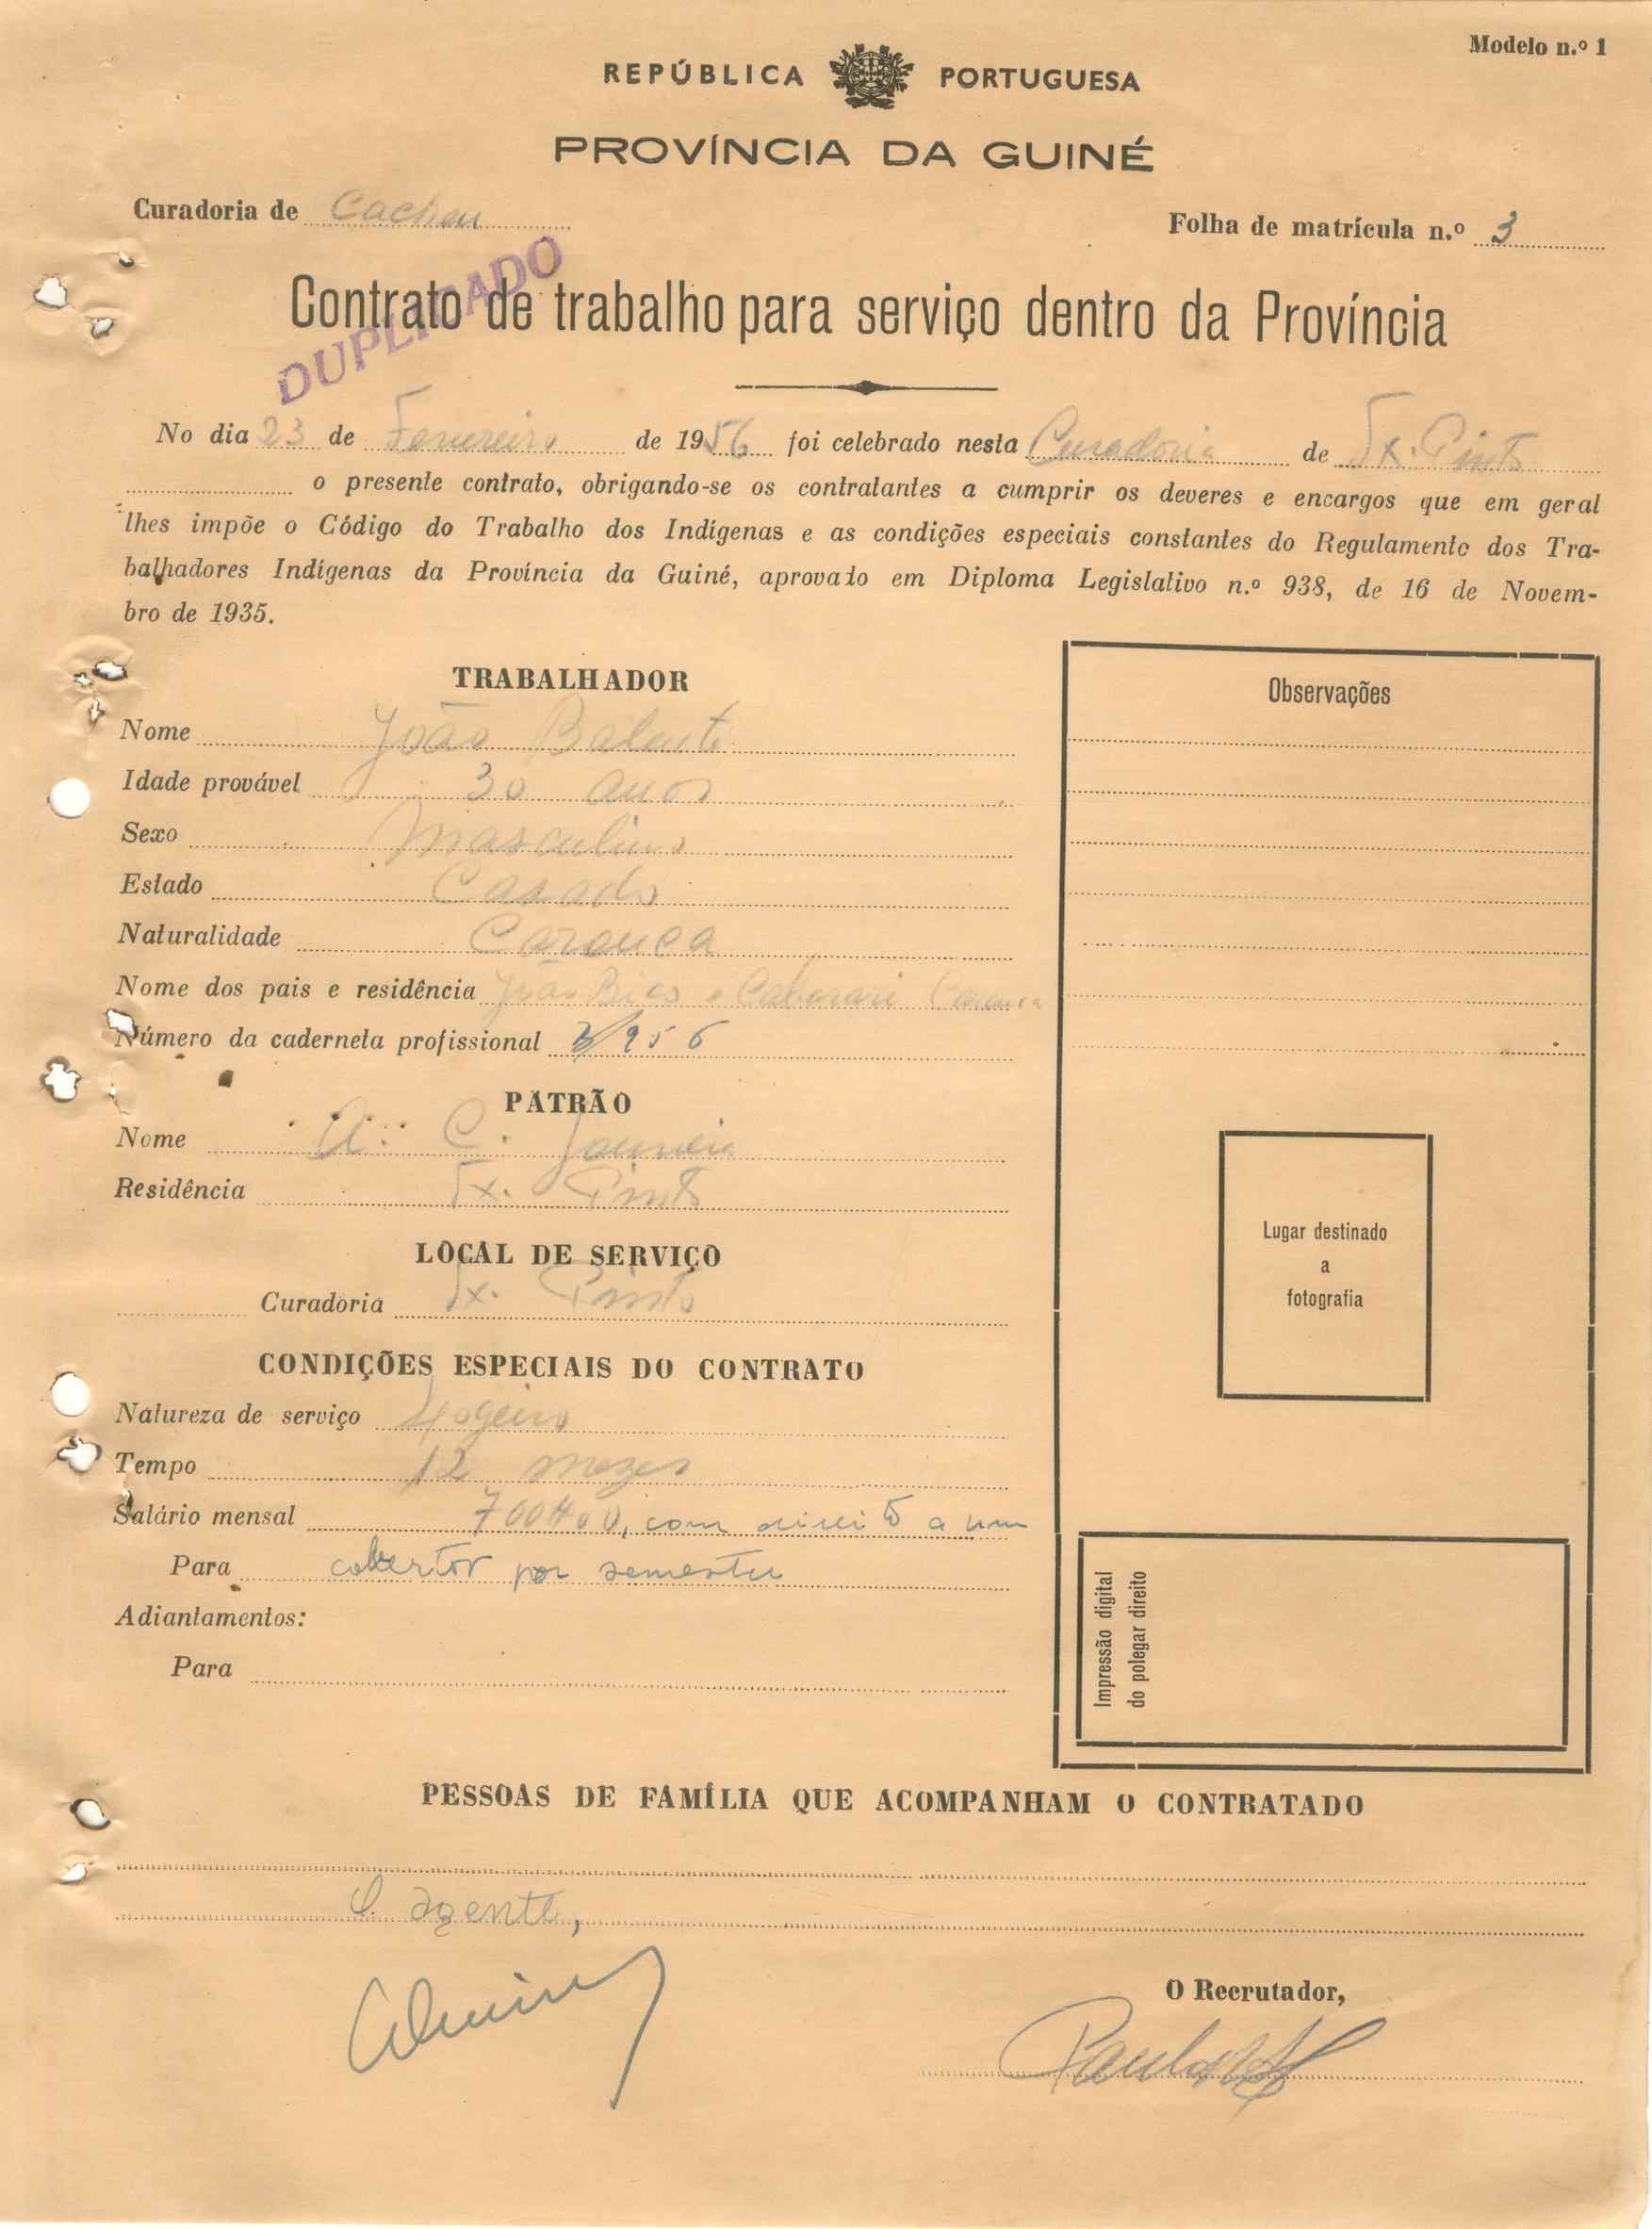 Modelo n.º 1
REPÚBLICA PORTUGUESA
PROVÍNCIA DA GUINÉ
Curadoria de Cacheu
Folha de matrícula n.º 3
DUPLICADO
Contrato de trabalho para serviço dentro da Província
No dia 23 de Fevereiro de 1956 foi celebrado nesta Curadoria de Tx. Pinto
o presente contrato, obrigando-se os contratantes a cumprir os deveres e encargos que em geral
lhes impõe o Código do Trabalho dos Indígenas e as condições especiais constantes do Regulamento dos Tra-
balhadores Indígenas da Província da Guiné, aprovado em Diploma Legislativo n.º 938, de 16 de Novem-
bro de 1935.
TRABALHADOR
Nome João
Idade provável 30 anos
Sexo Masculino
Estado Casado
Naturalidade
Nome dos pais e residência João
Número da caderneta profissional 3/956
PATRÃO
Nome A. C.
Residência Tx. Pinto
LOCAL DE SERVIÇO
Curadoria Tx. Pinto
CONDIÇÕES ESPECIAIS DO CONTRATO
Natureza de serviço
Tempo 12 mezes
Salário mensal 700$00, com direito a um
Para cobertor por semestre
Adiantamentos:
Para
Observações
Lugar destinado
a
fotografia
Impressão digital
do polegar direito
PESSOAS DE FAMÍLIA QUE ACOMPANHAM O CONTRATADO
O agente,
O Recrutador,